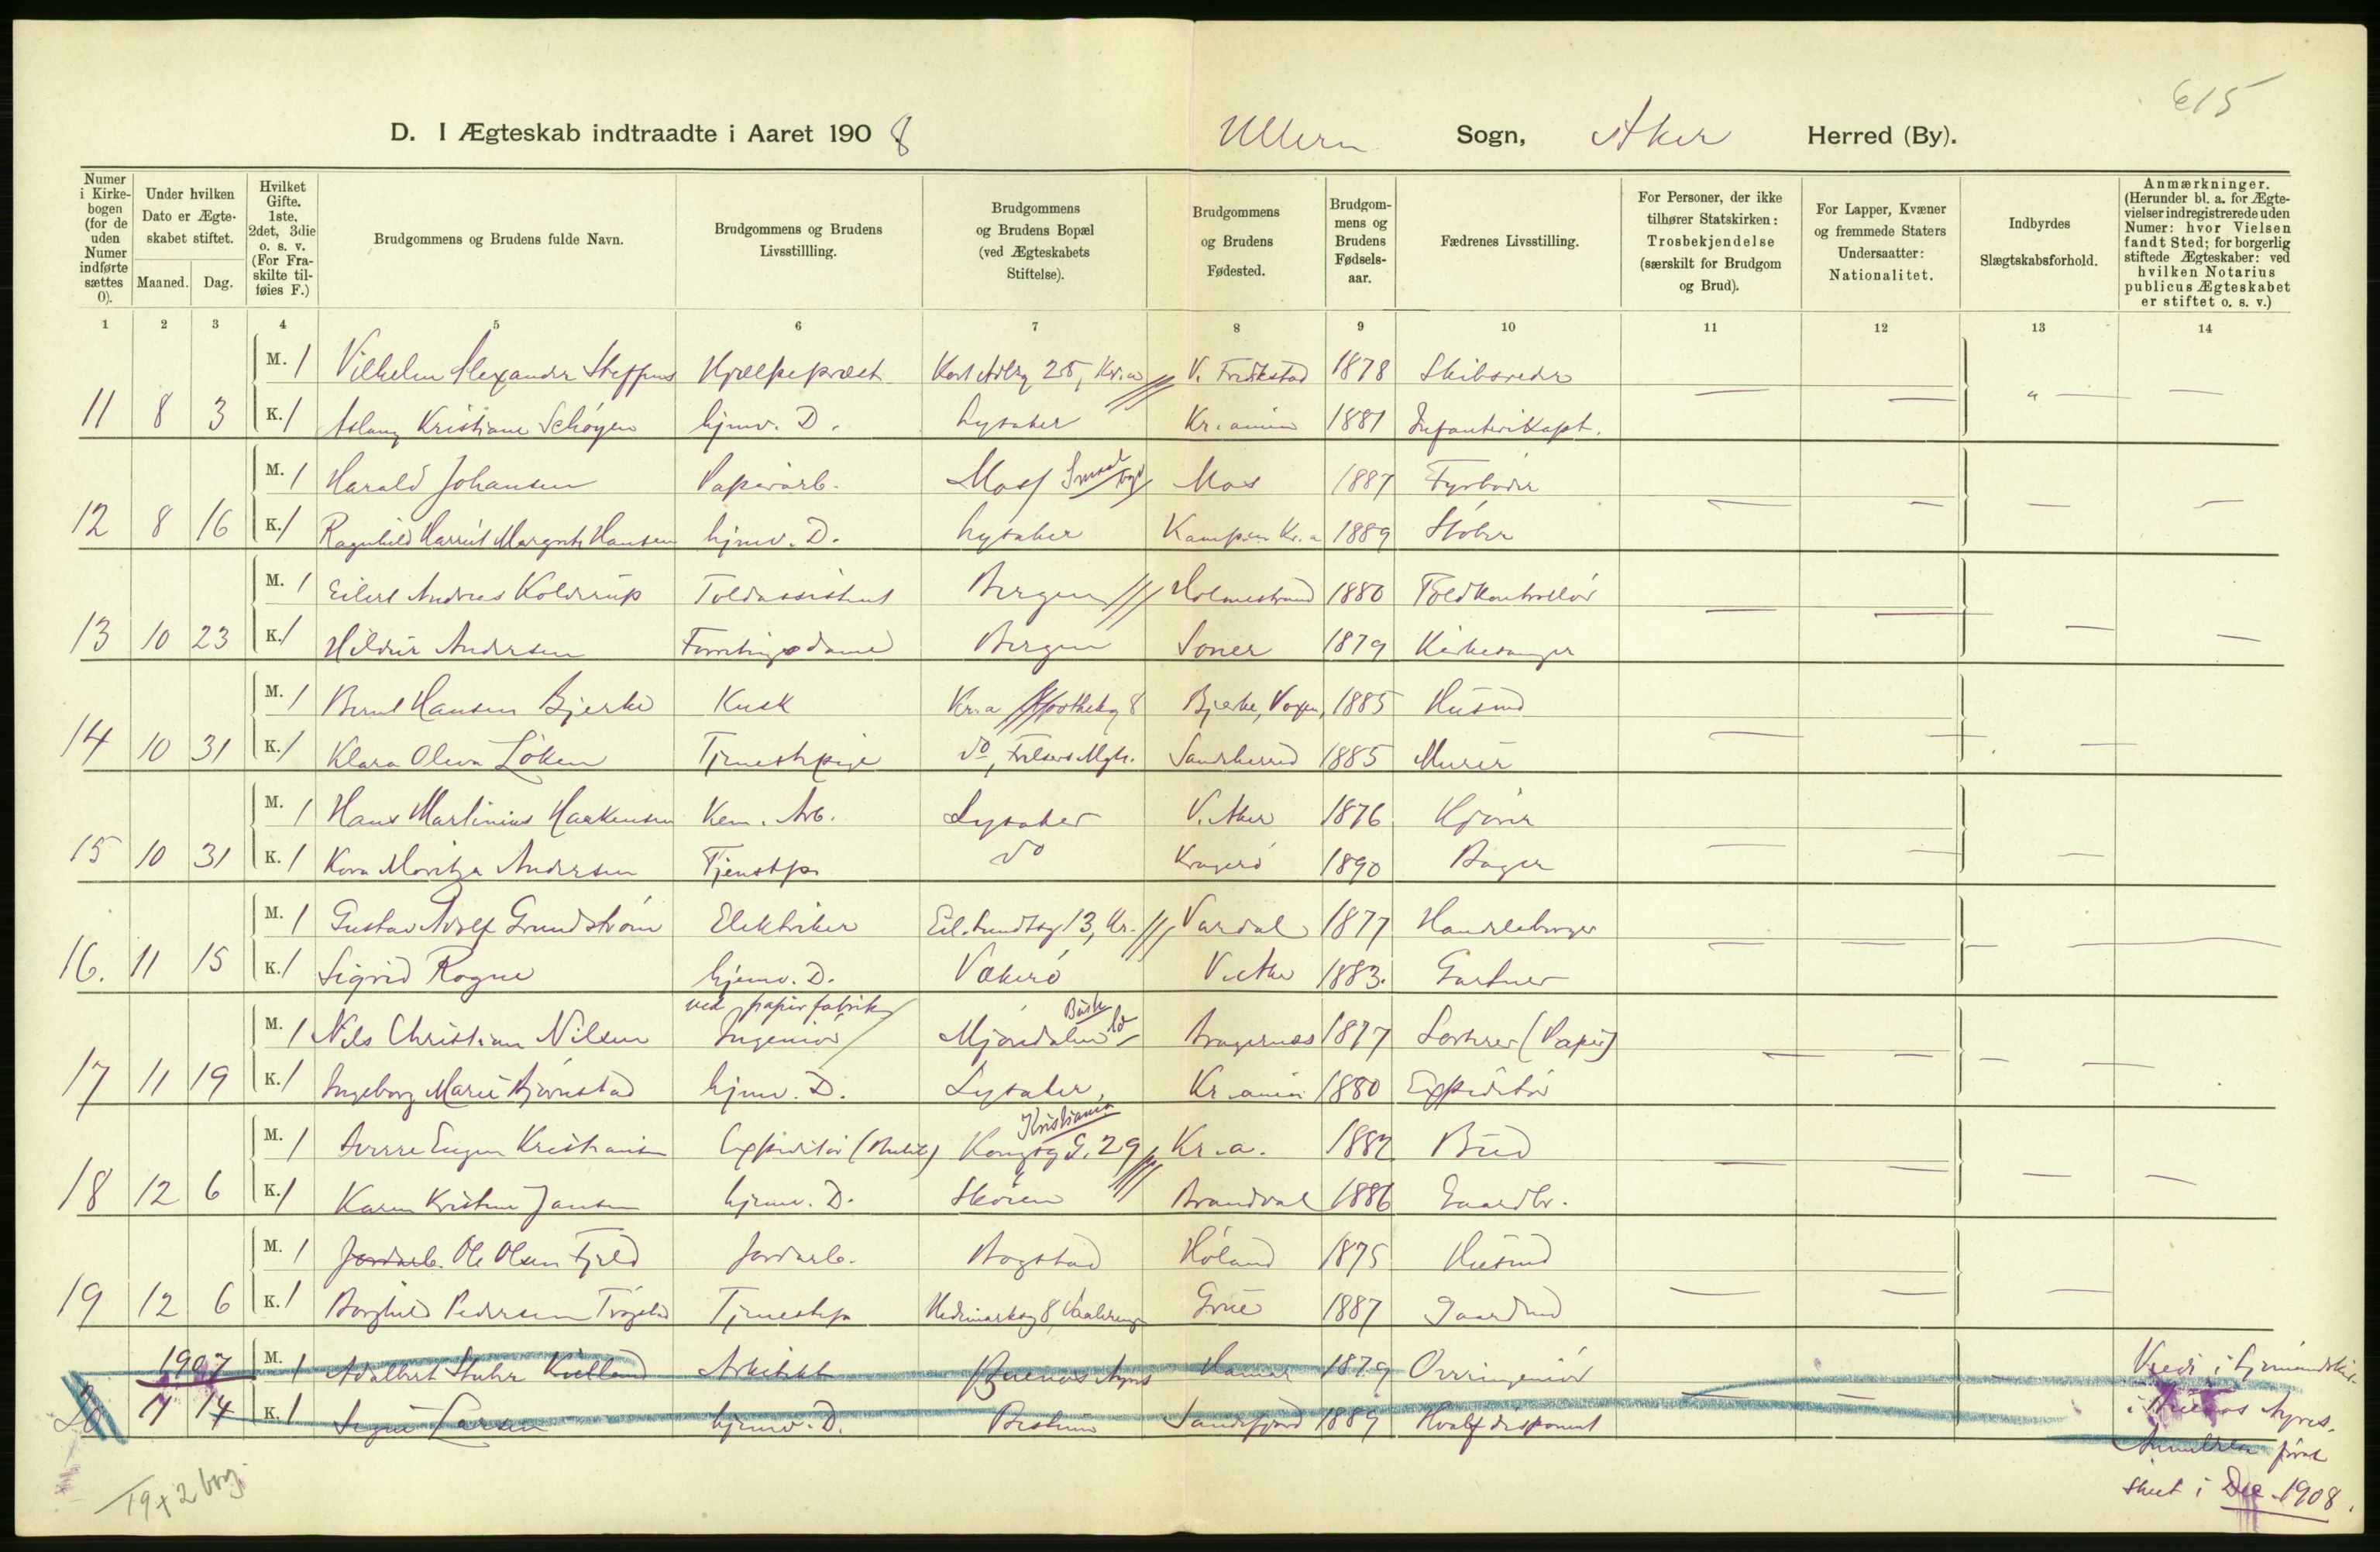 615
D. I Ægteskab indtraadte i Aaret 1908 Ullern Sogn, Aker Herred (By).
Numer i Kirkebogen (for de uden Numer indførte sættes 0).
Under hvilken Dato er Ægteskabet stiftet.
Maaned. Dag.
Hvilket Gifte. 1ste, 2det, 3die o. s. v. (For Fraskilte tilføies F.)
Brudgommens og Brudens fulde Navn.
Brudgommens og Brudens Livsstillling.
Brudgommens og Brudens Bopæl (ved Ægteskabets Stiftelse).
Brudgommens og Brudens Fødested.
Brudgommens og Brudens Fødselsaar.
Fædrenes Livsstilling.
For Personer, der ikke tilhører Statskirken: Trosbekjendelse (særskilt for Brudgom og Brud).
For Lapper, Kvæner og fremmede Staters Undersaatter: Nationalitet.
Indbyrdes Slægtskabsforhold.
Anmærkninger. (Herunder bl. a. for Ægtevielser indregistrerede uden Numer: hvor Vielsen fandt Sted; for borgerlig stiftede Ægteskaber: ved hvilken Notarius publicus Ægteskabet er stiftet o. s. v.)
1 2 3 4 5 6 7 8 9 10 11 12 13 14
M. 1 Vilhelm Alexander Steffens Hjælpepræst 25, Kr.a V. Fredikstad 1878 Skibsreder — — " — —
11 8 3 K. 1 Aslaug Kristiane Schøyen hjmv. D. Lysaker Kr.ania 1881 Infanterikapt.
M. 1 Harald Johansen Papirarb. Moss Mos 1887 Fyrbøder
12 8 16 K. 1 Ragnhild Harriet Margrete Hansen hjmv. D. Lysaker Kampen Kr.a 1889 Støber — — — —
M. 1 Eilert Andreas Koldrup Toldassistent Bergen Holmestrand 1880 Toldkontrollør
13 10 23 K. 1 Hildur Andersen Forretningsdame Bergen Soner 1879 Kirkesanger — — — —
M. 1 Bernt Hansen Bjerke Kusk Kr.a Apothekg 8 Bjerke, 1885 Husmd
14 10 31 K. 1 Klara Oleva Løken Tjenestepige do, Frelsers Mgh. Sandeherred 1885 Murer — — —
M. 1 Hans Martinius Haakensen Kem. Arb. Lysaker V. Aker 1876 Kjører
15 10 31 K. 1 Kora Moritza Andersen Tjenstp. do Kragerø 1890 Bager — — —
M. 1 Gustav Adolf Grundstrøm Elektriker Eil. Sundtsg 13, Kr. Vardal 1877 Handelsborger
16. 11 15 K. 1 Sigrid Rogne hjemv. D. Vækerø V. Aker 1883. Gartner — — — —
ved papirfabrik
M. 1 Nils Christian Nilsen Ingeniør Mjøndalen Busk Bragernæs 1877 Sorterer (Papir)
17 11 19 K. 1 Ingeborg Marie Bjørnstad hjmv. D. Lysaker Kr.ania 1880 Expeditør — — — —
Kristiania
M. 1 Sverre Eugen Kristiansen Expeditør Kongsg G. 29 Kr.a. 1882 Bud
18 12 6 K. 1 Karen Kristine Jansen hjemv. D. Skøien Brandval 1886 Gaardbr. — — — —
M. 1 Jordarb. Ole Olsen Fjeld Jordarb. Bogstad Høland 1875 Husmd
19 12 6 K. 1 Borghild Pedersen Trøgstad Tjenestp. Hedemarksg 8, Vaalereng Grue 1887 Gaardmd — — —
1907 M. 1 Adalbert Stuhr Kielland Arkitekt Buenos Ayres Hamar 1879 Overingeniør
20 7 14 K. 1 Signe Larsen hjemv. D. Bestum Sandefjord 1889 Hvalfdisponent — —
Viede i Sjømandskir.
i Buenos Ayres.
Anmeldelse først
skeet i Dec. 1908.
19 + 2 borg.